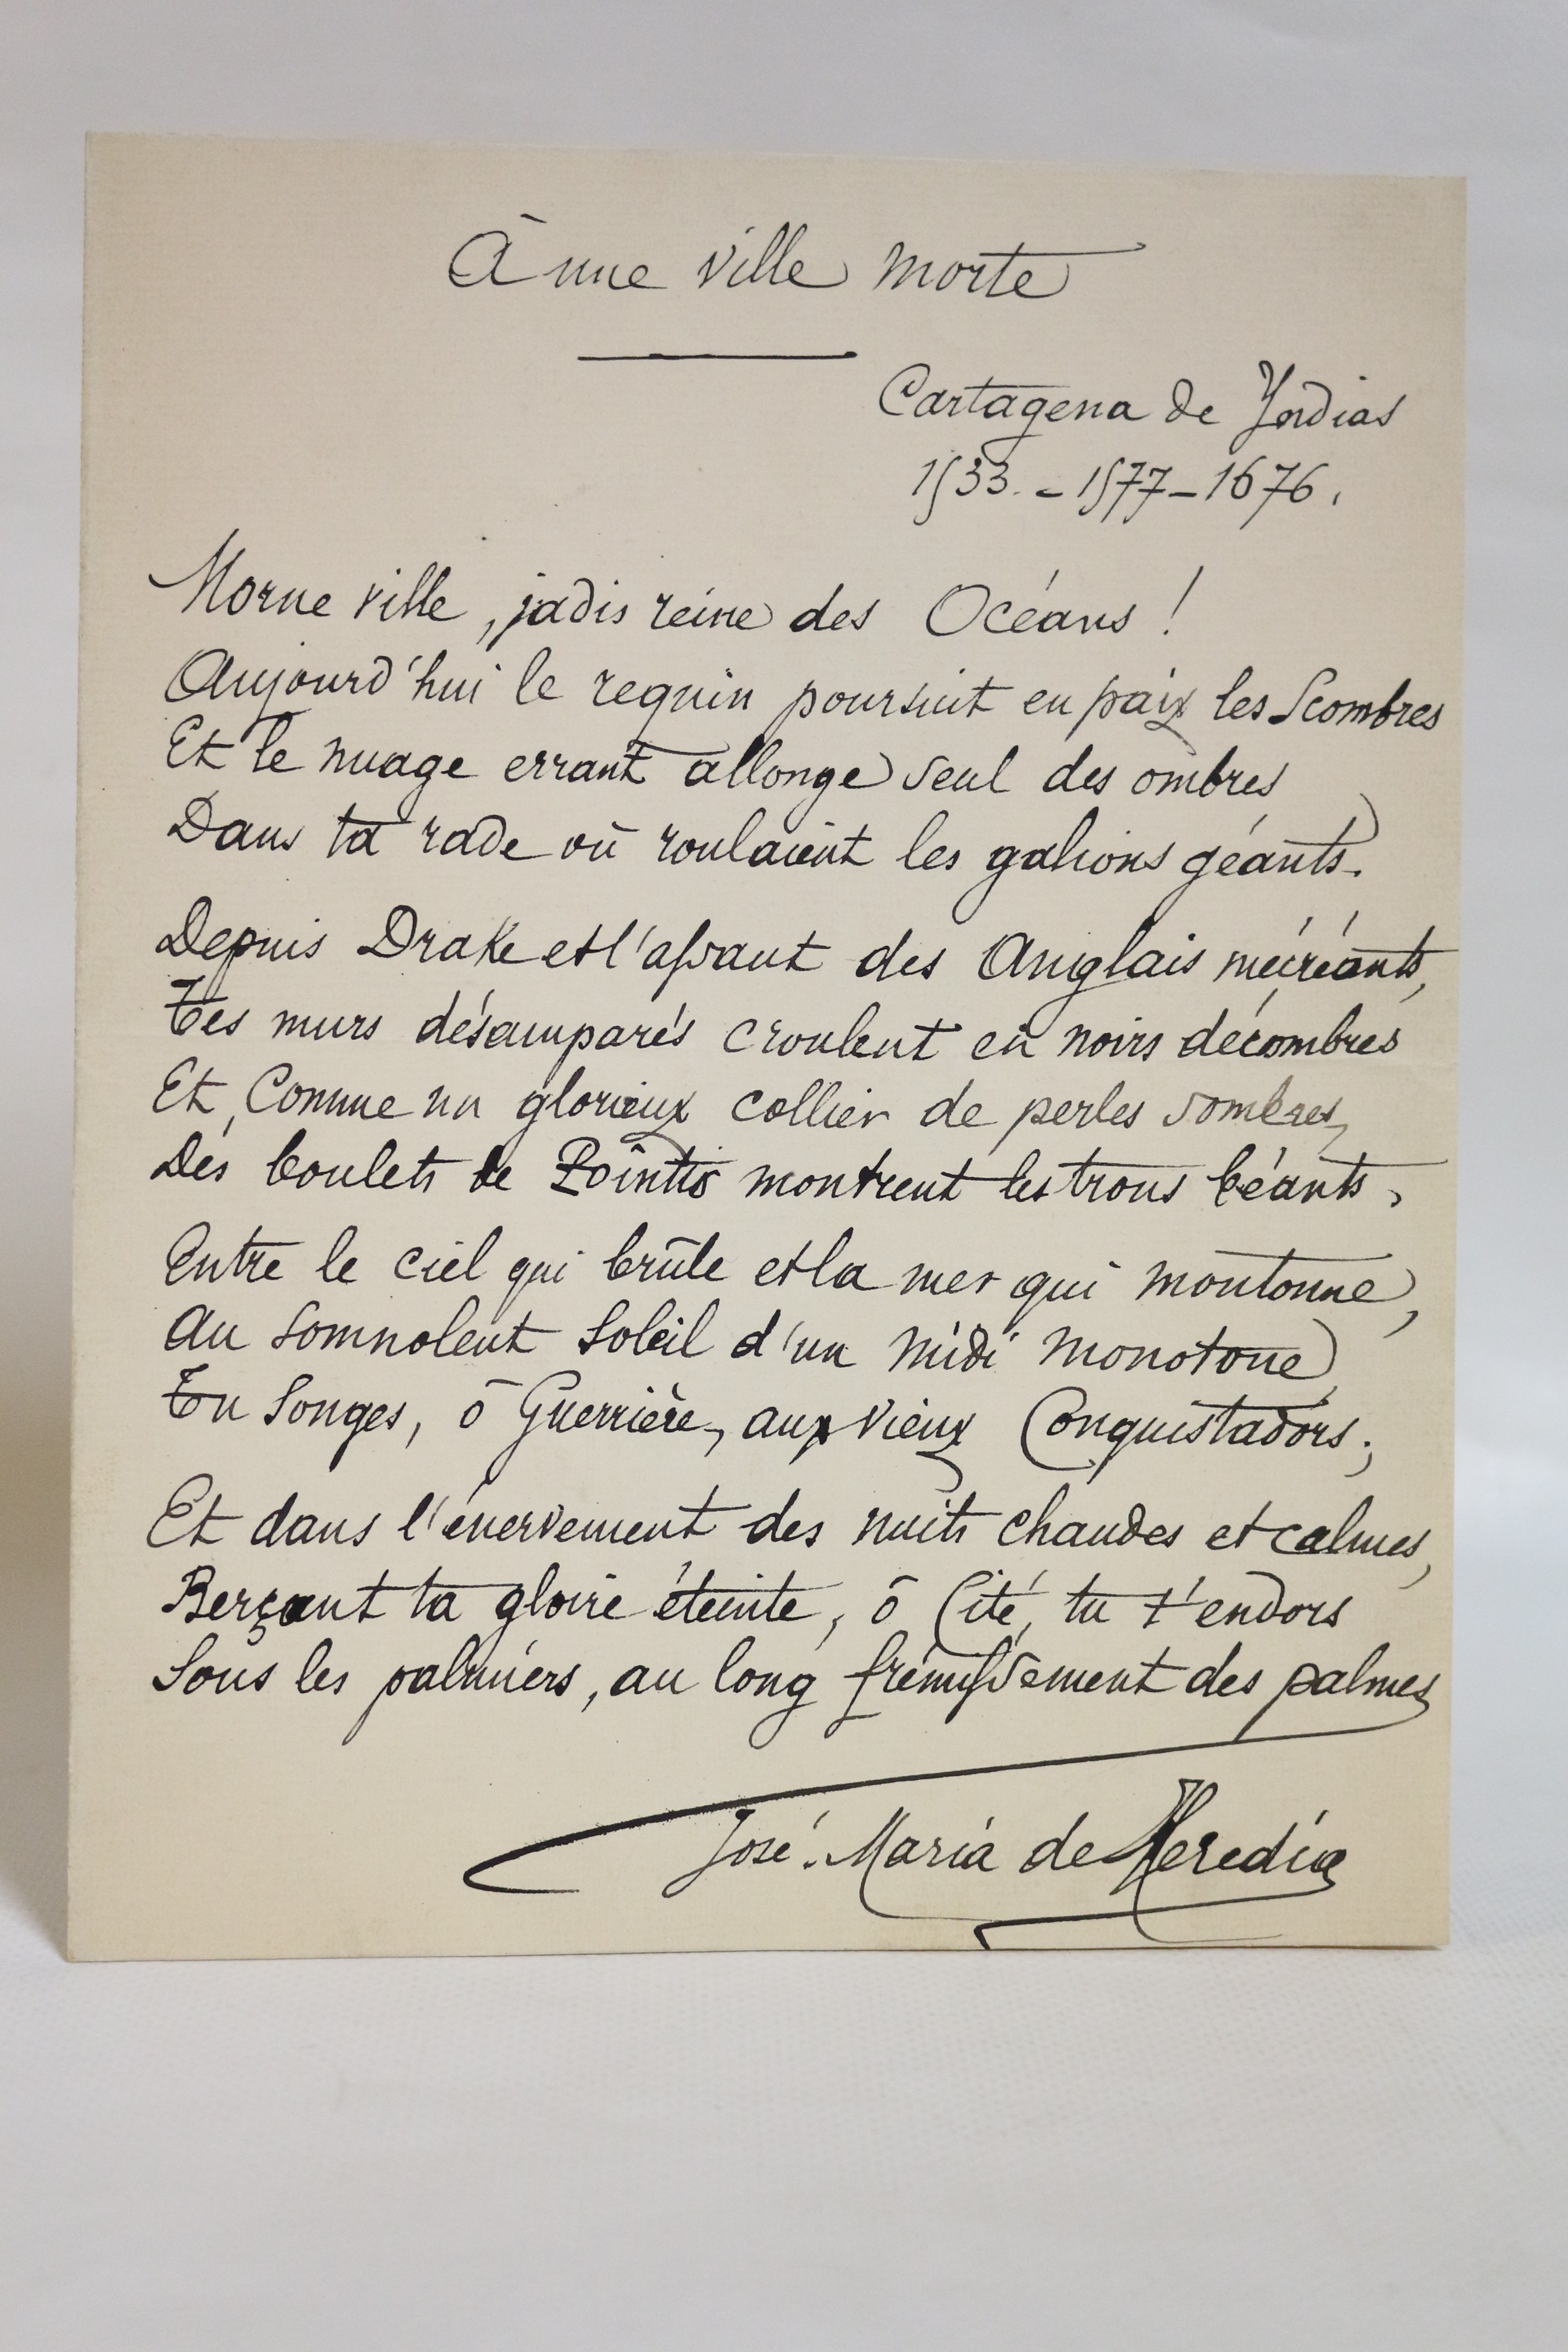 À une ville morte
Cartagena de Yndias
1533. - 1577 - 1676.
Morne ville, jadis reine des Océans !
Aujourd'hui le requin poursuit en paix les Scombres
Et le nuage errant allonge seul des ombres
Dans ta rade où roulaient les galions géants.
Depuis Drake et l'assaut des Anglais mécréants,
Tes murs désemparés croulent en noirs décombres
Et, Comme un glorieux collier de perles sombres,
Des boulets de Pointis montrent les trous béants.
Entre le ciel qui brûle et la mer qui moutonne,
Au somnolent Soleil d'un midi monotone,
Tu Songes, ô Guerrière, aux vieux Conquistadors ;
Et dans l'énervement des nuits chaudes et calmes,
Berçant ta gloire éteinte, ô Cité, tu t'endors
Sous les palmiers, au long frémissement des palmes
José-Maria de Heredia